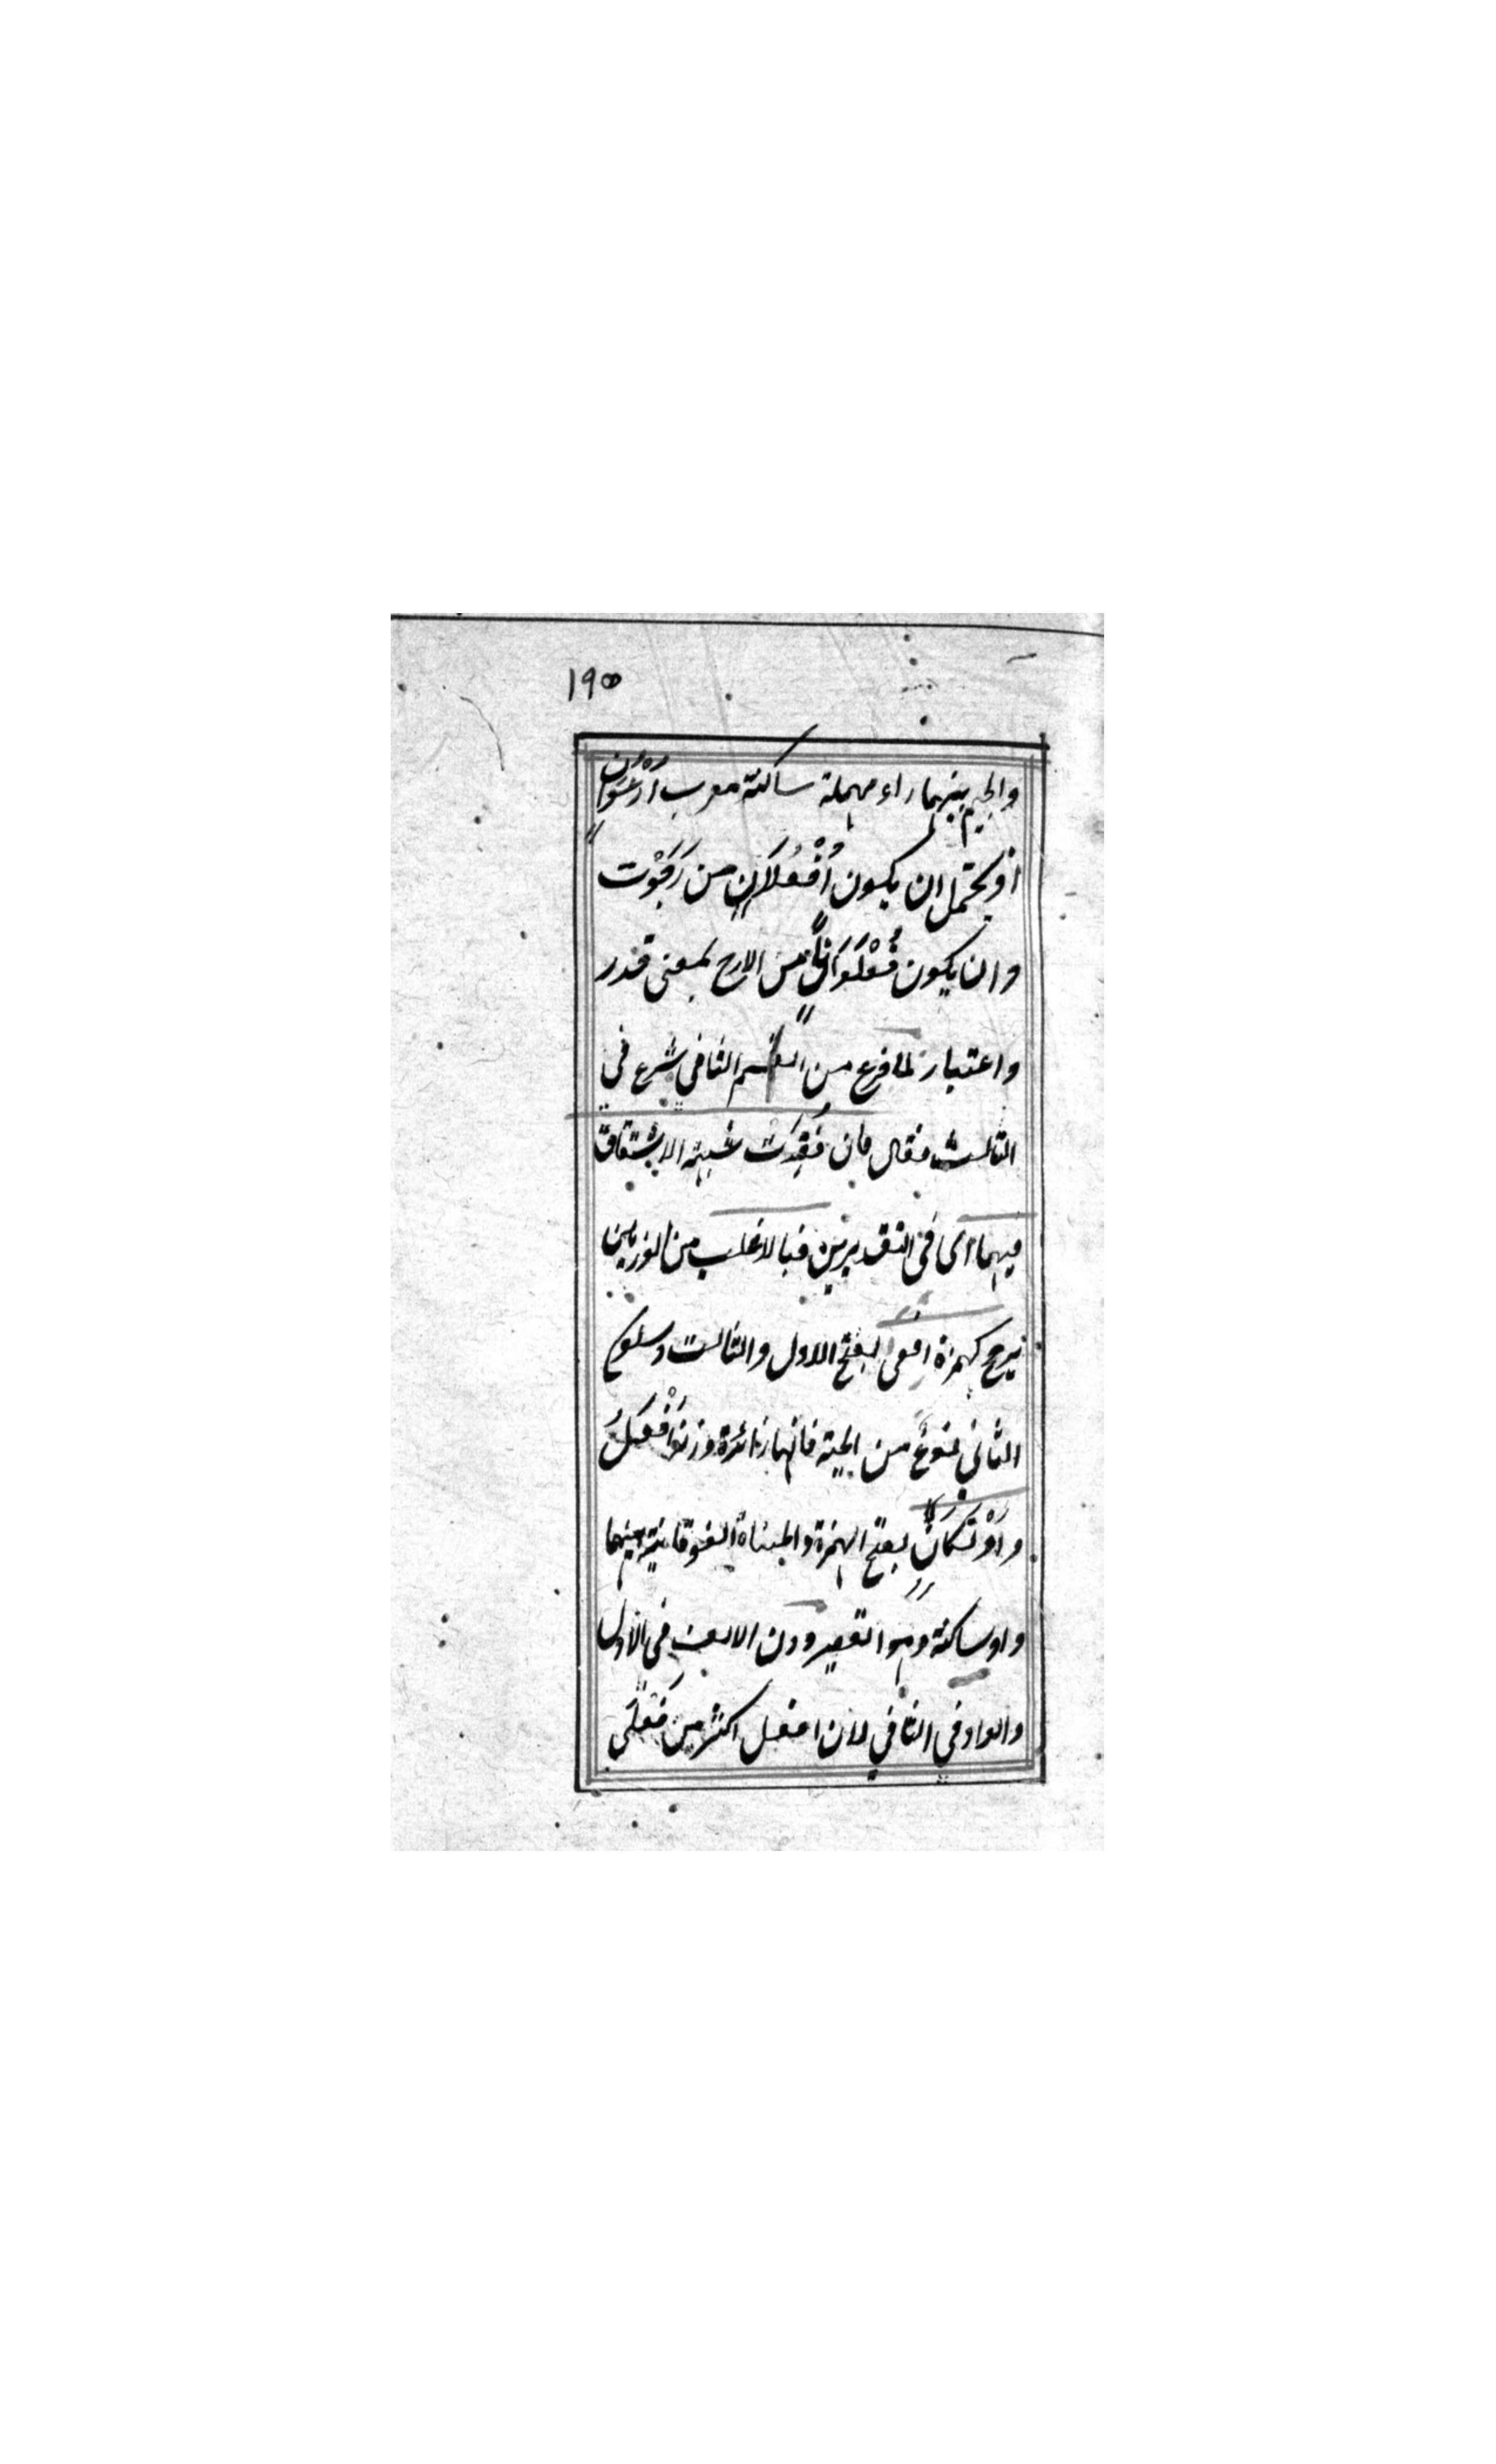 ١٩٥
والجيم بينهما راء مهملة ساكنة معرب أُرْغُوَان
اذ يحتمل ان يكون أُفْعُلَانٍ من رَجَوْت
وان يكون فُعْلُوَانًا من الارج بمعنى قدر
واعتبار لما فرغ من القسم الثاني شرع في
الثالث فقال فان فُقِدَتْ شبهة الاشتقاق
فيهما اى في التقديرين فبالاغلب من الوزنين
يرجح كهمزة افعى بفتح الاول والثالث وسكون
الثاني لنوع من الحية فانها زائدة وزنها أَفْعَلُ
وأَوْتَكَانٍ بفتح الهمزة والمثناة الفوقانية بينهما
واو ساكنة وهو القصير دون الالف في الاول
والواو في الثاني لان افعل اكثر من فَعْلَى